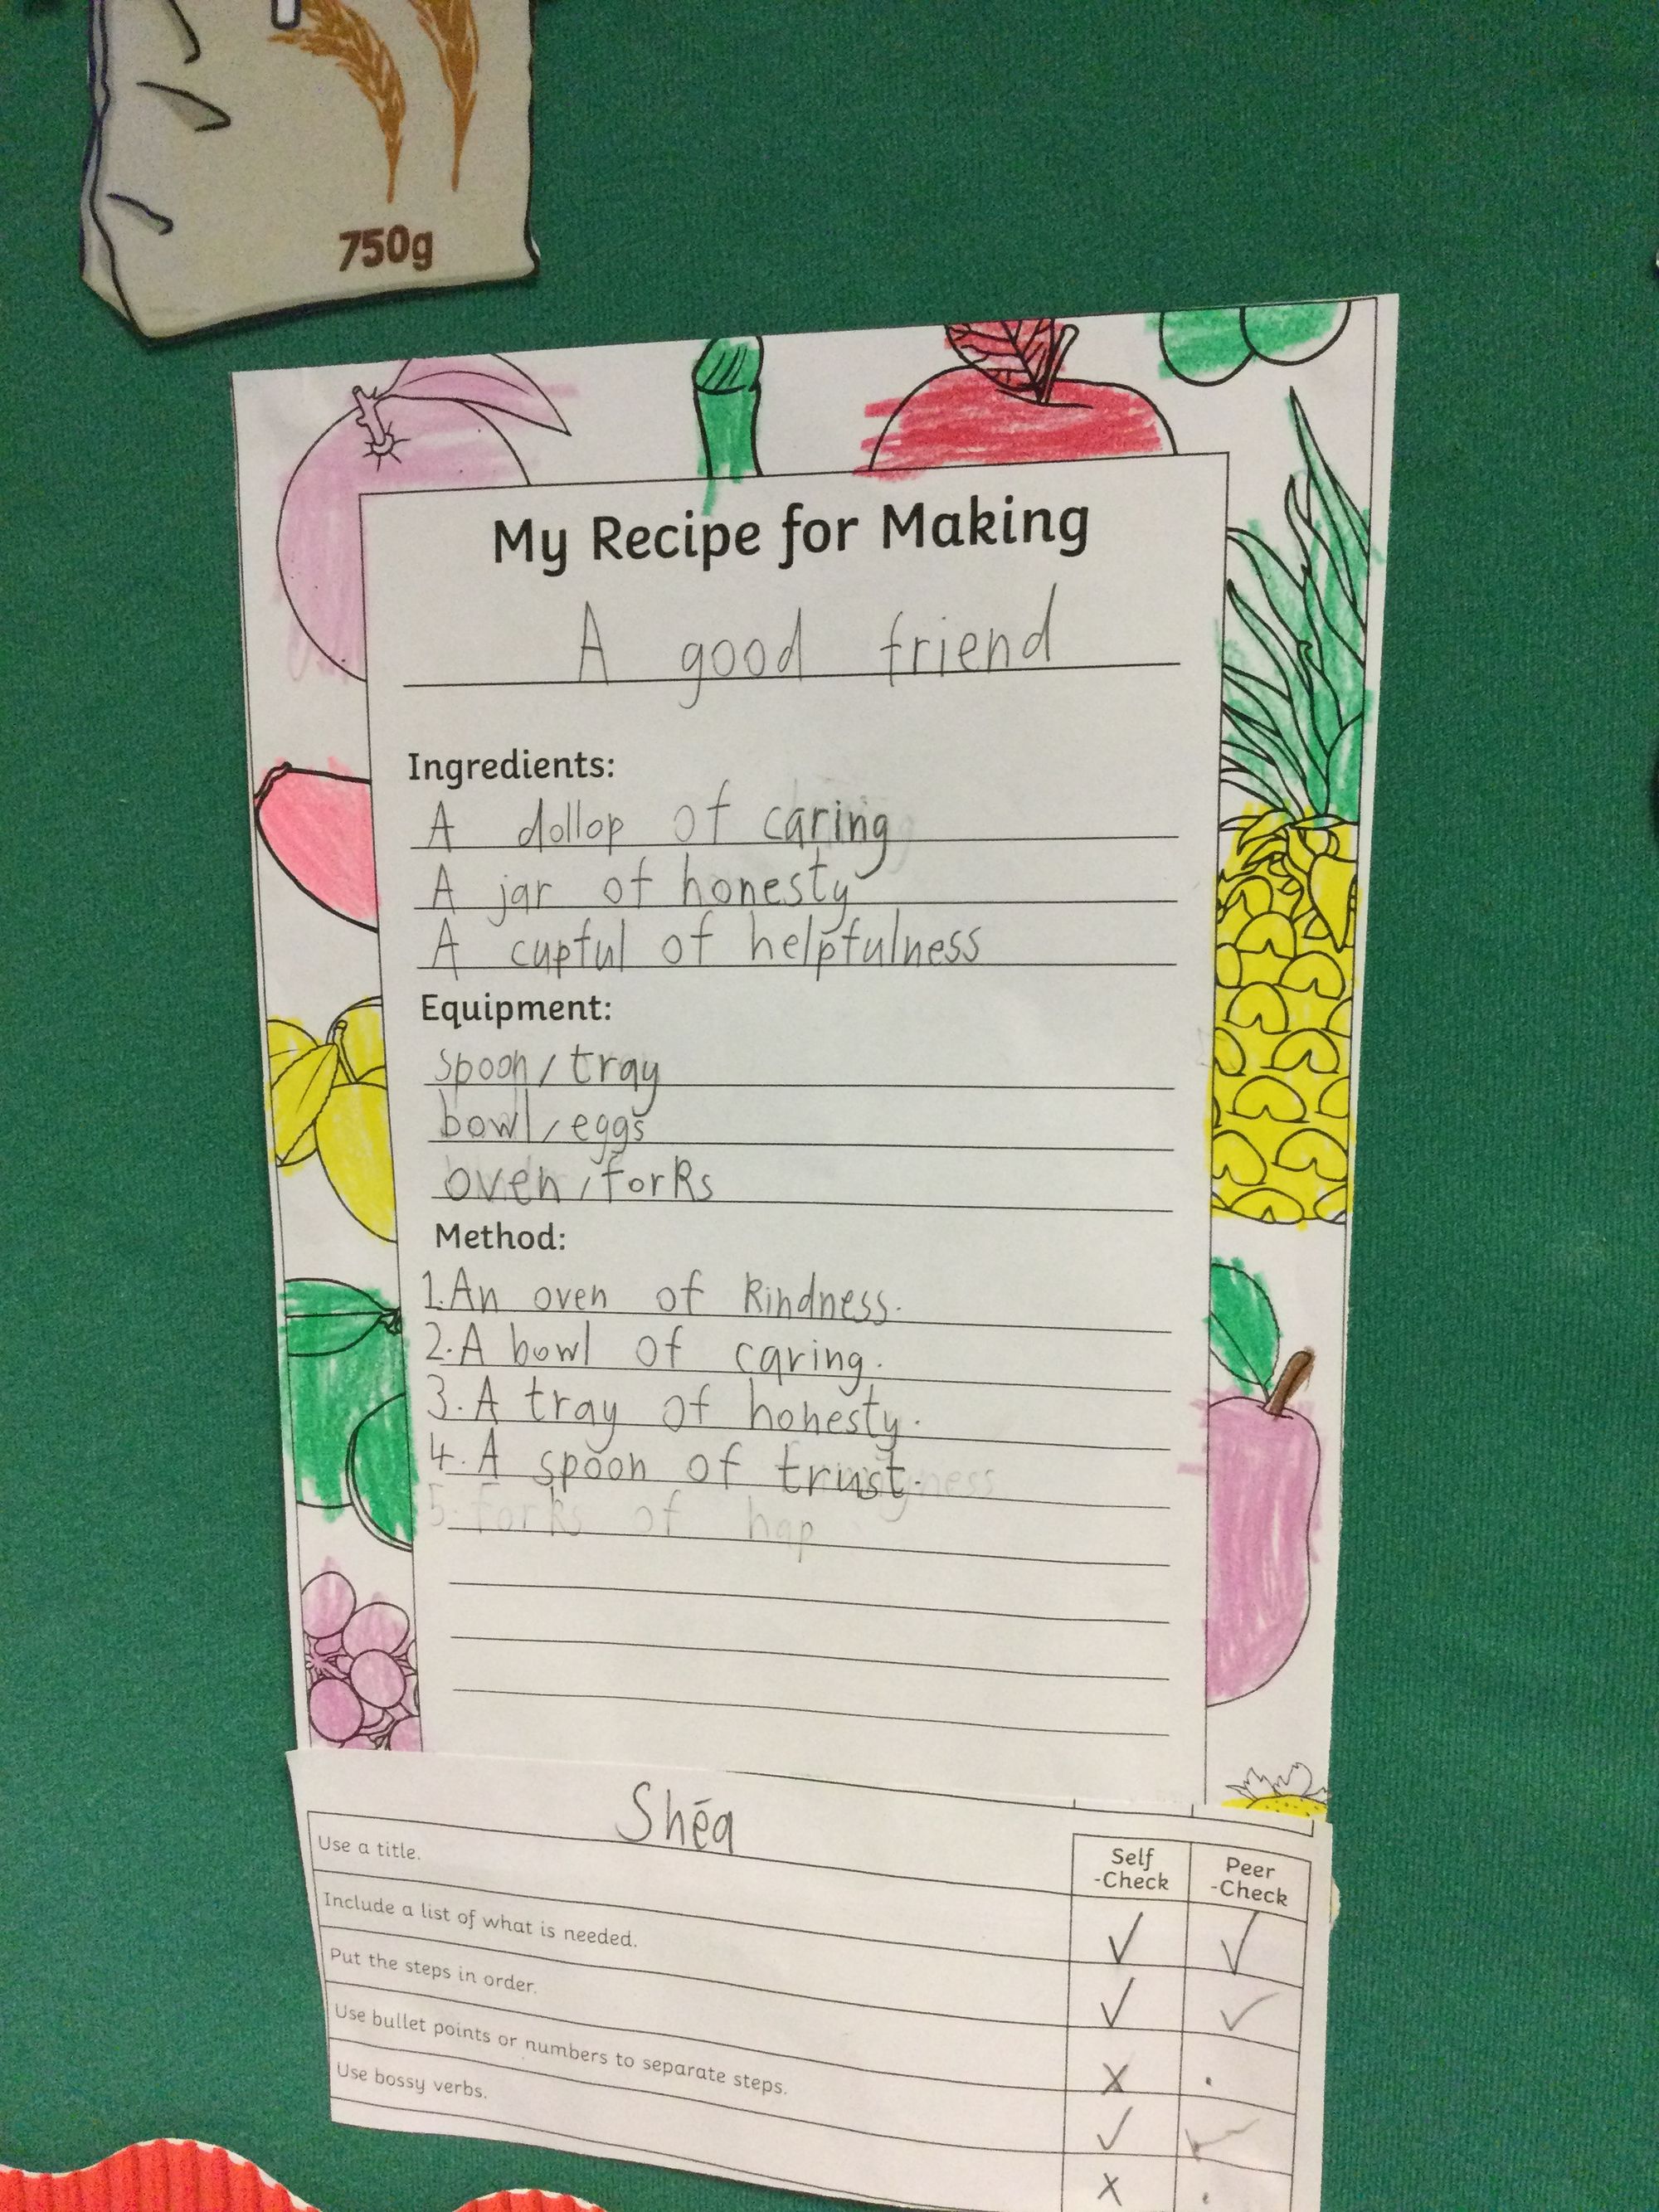 750g
My Recipe for Making
A good friend
Ingredients:
A dollop of caring
A jar of honesty
A cupful of helpfulness
Equipment:
spoon/tray
bowl/eggs
oven/forks
Method:
1.An oven of kindness.
2.A bowl of caring.
3.A tray of honesty.
4.A spoon of trust.
5.forks of hap
Shéa
Self-Check Peer-Check
Use a title. ✓ ✓
Include a list of what is needed. ✓ ✓
Put the steps in order. x .
Use bullet points or numbers to separate steps. ✓ ✓
Use bossy verbs. x .